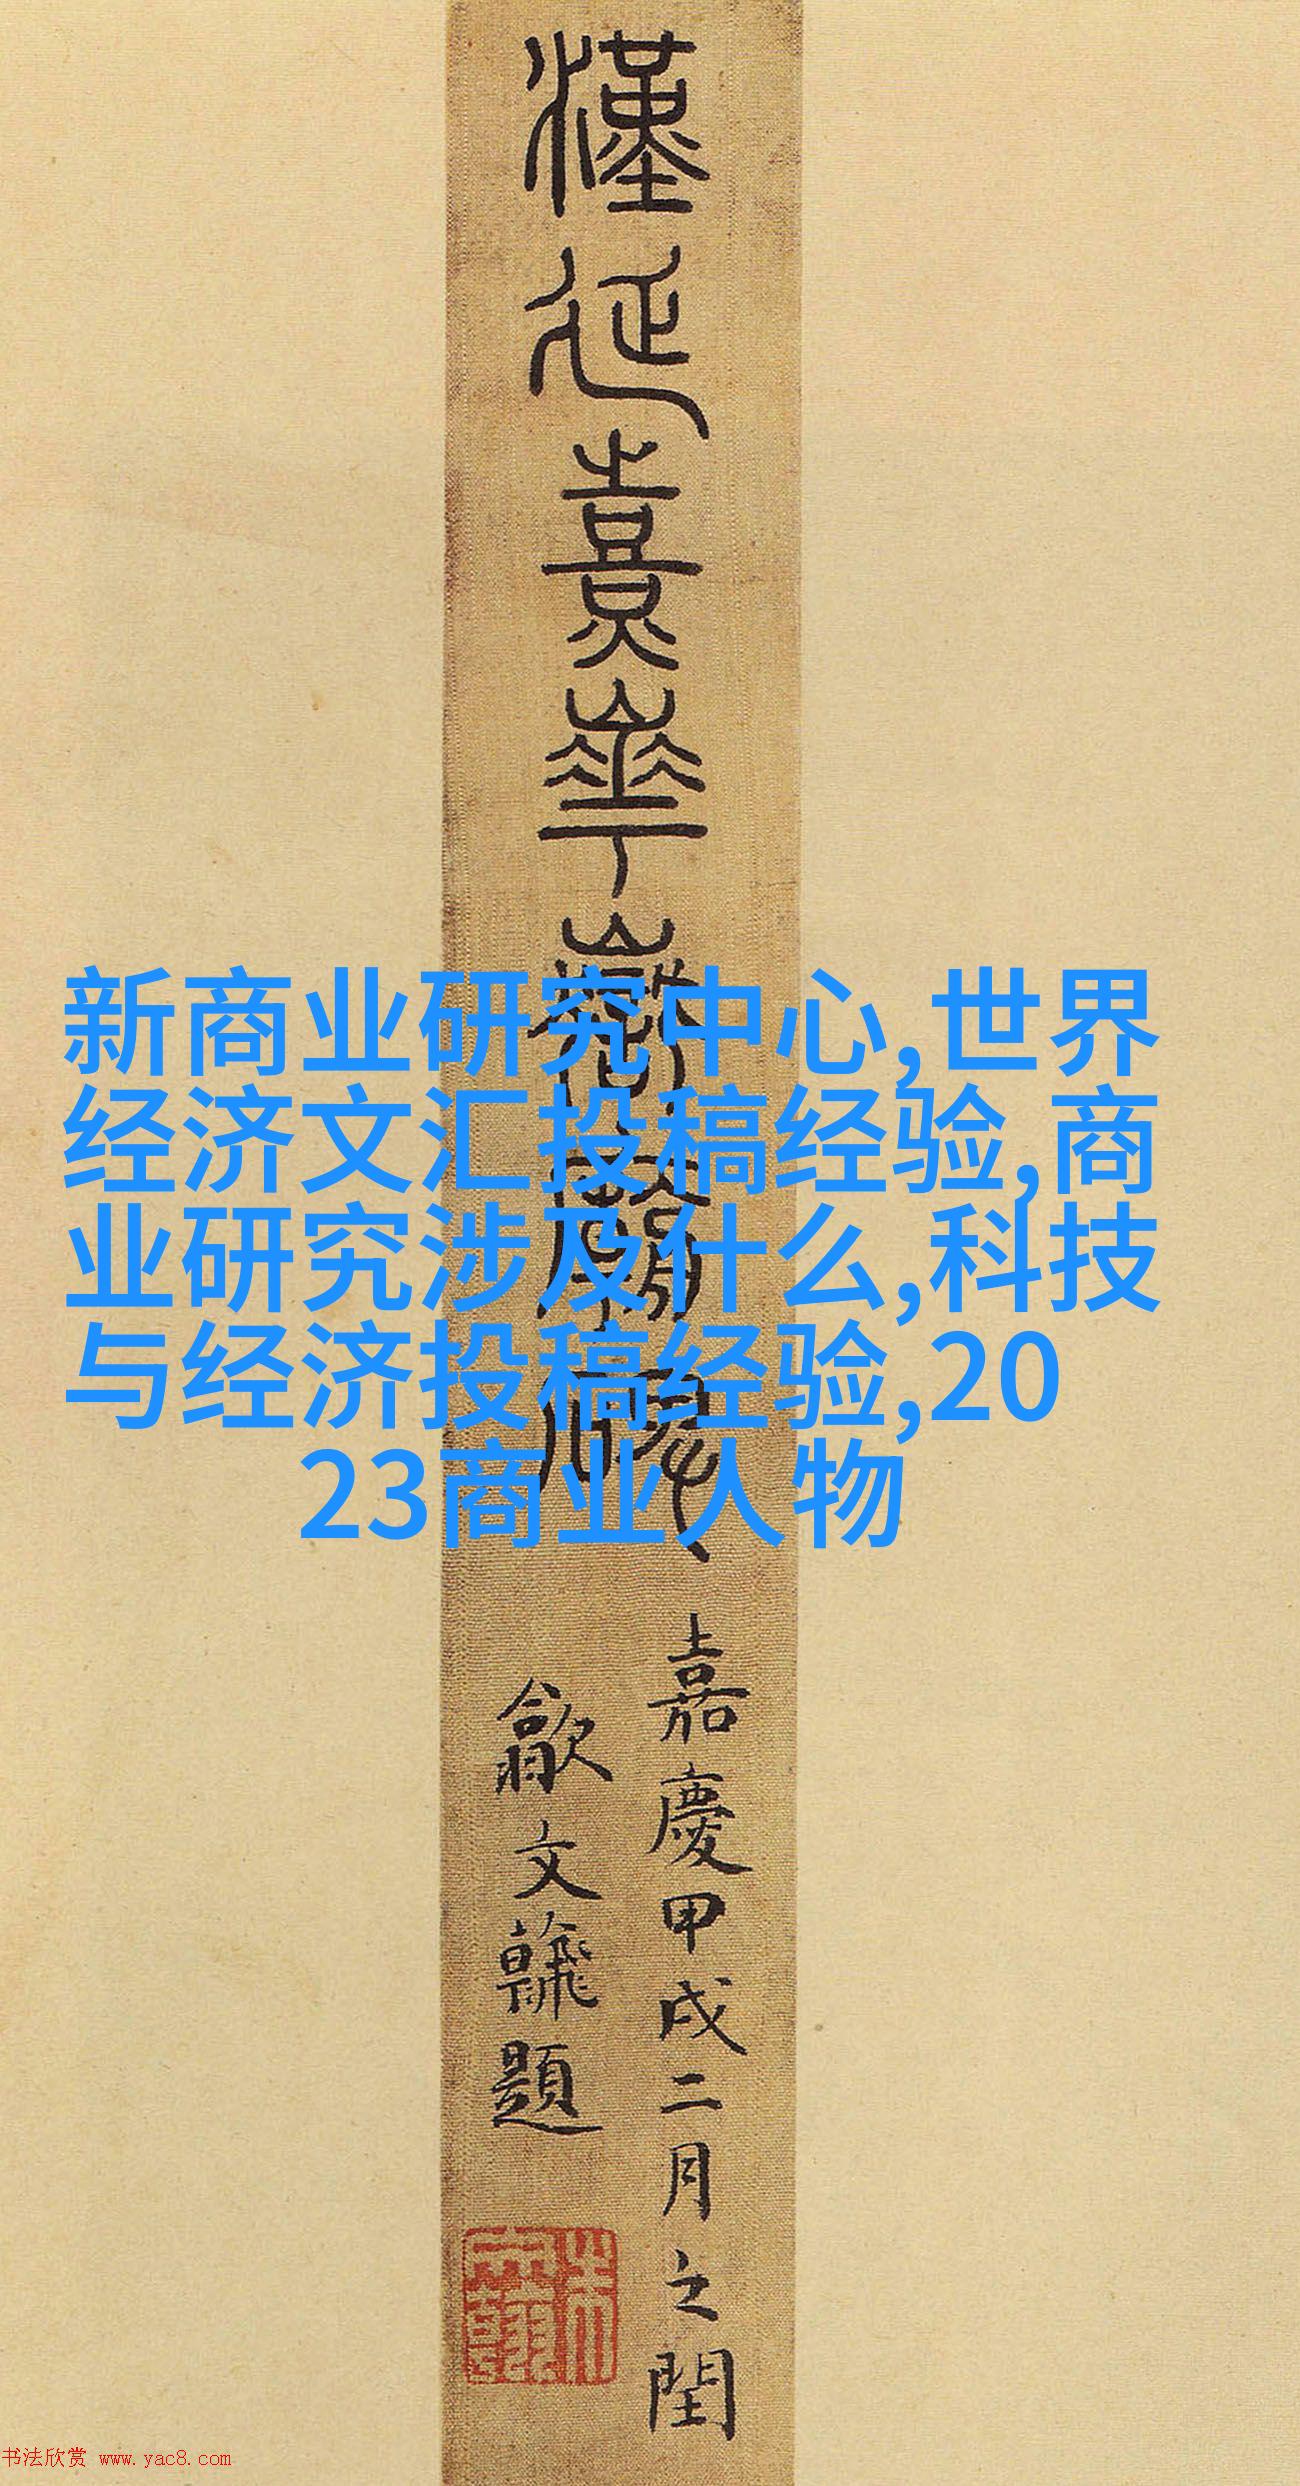 漢延熹華嶽廟碑
新商业研究中心,世界
经济文汇投稿经验,商
业研究涉及什么,科技
与经济投稿经验,20
23商业人物
嘉慶甲戌二月之閏
歙文題
书法欣赏 www.yac8.com